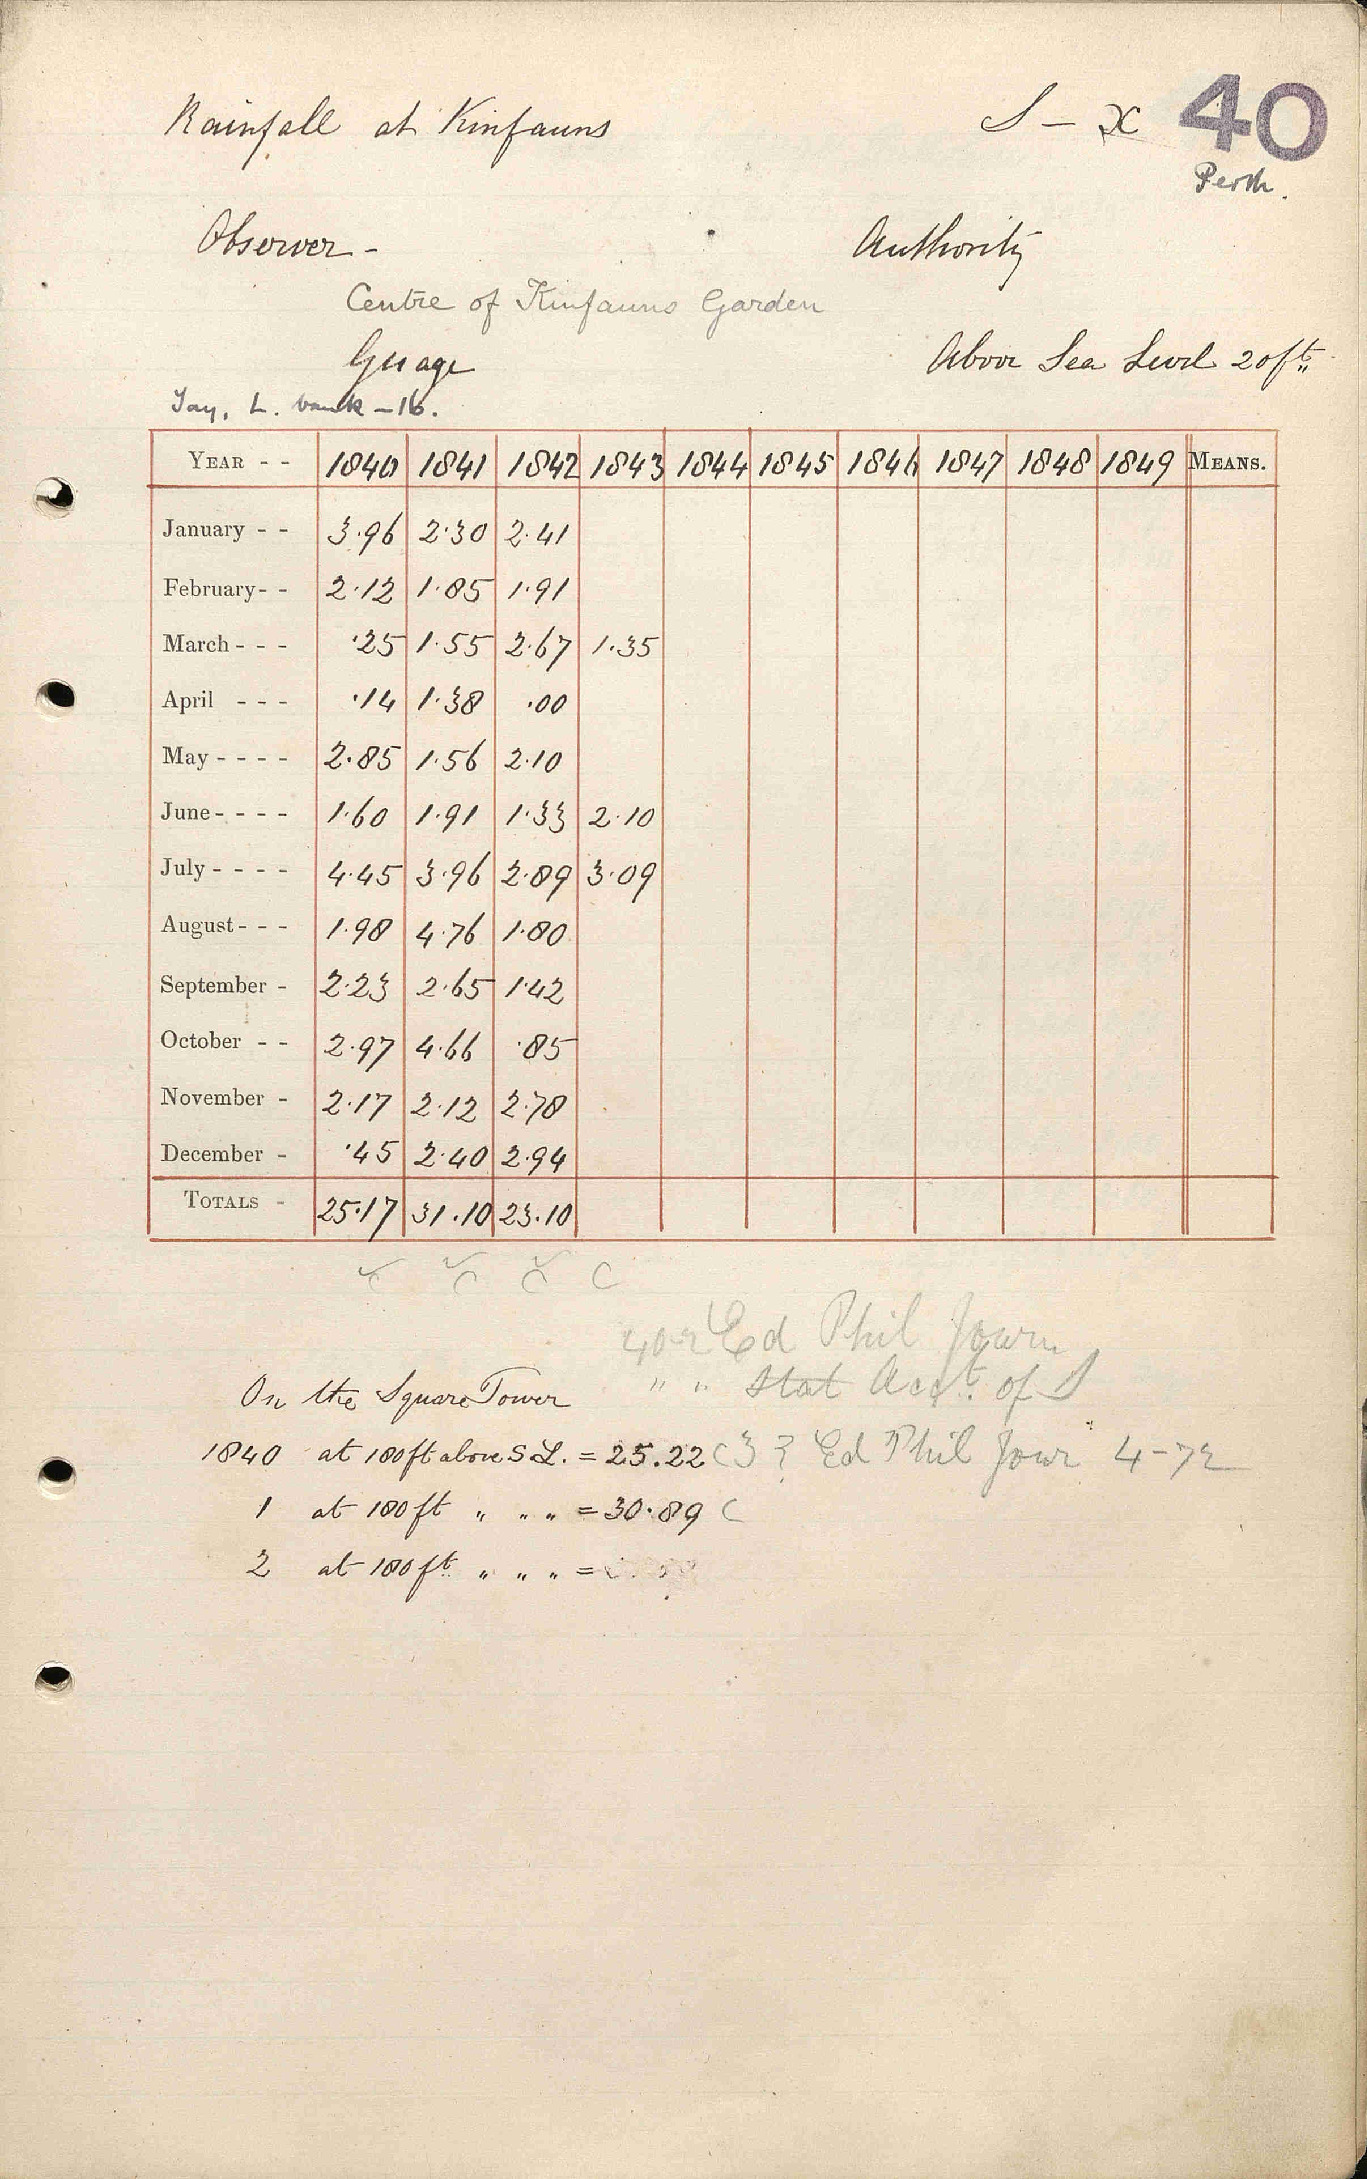 Rainfall at Kinfauns S - x 40
Perth.
Observer - Authority
Centre of Kinfauns Garden
Guage Above Sea Level 20 ft.
Tay, L. bank - 16.
YEAR - - 1840 1841 1842 1843 1844 1845 1846 1847 1848 1849 MEANS.
January - - 3.96 2.30 2.41
February - - 2.12 1.85 1.91
March - - - .25 1.55 2.67 1.35
April - - - .14 1.38 .00
May - - - - 2.85 1.56 2.10
June - - - - 1.60 1.91 1.33 2.10
July - - - - 4.45 3.96 2.89 3.09
August - - - 1.98 4.76 1.80
September - 2.23 2.65 1.42
October - - 2.97 4.66 .85
November - 2.17 2.12 2.78
December - .45 2.40 2.94
TOTALS - 25.17 31.10 23.10
C C C C
Ed Phil Journ
" " Stat Acct. of S
On the Square Tower
1840 at 180 ft above S L. = 25.22 C Ed Phil Jour 4-72
1 at 180 ft " " " = 30.89 C
2 at 180 ft. " " " =